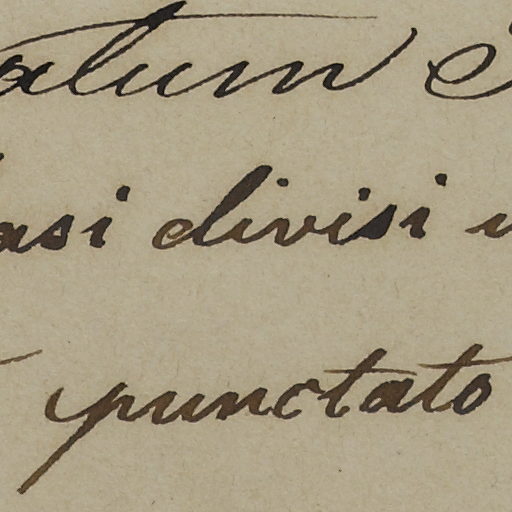 atum
asi divisi
punctato